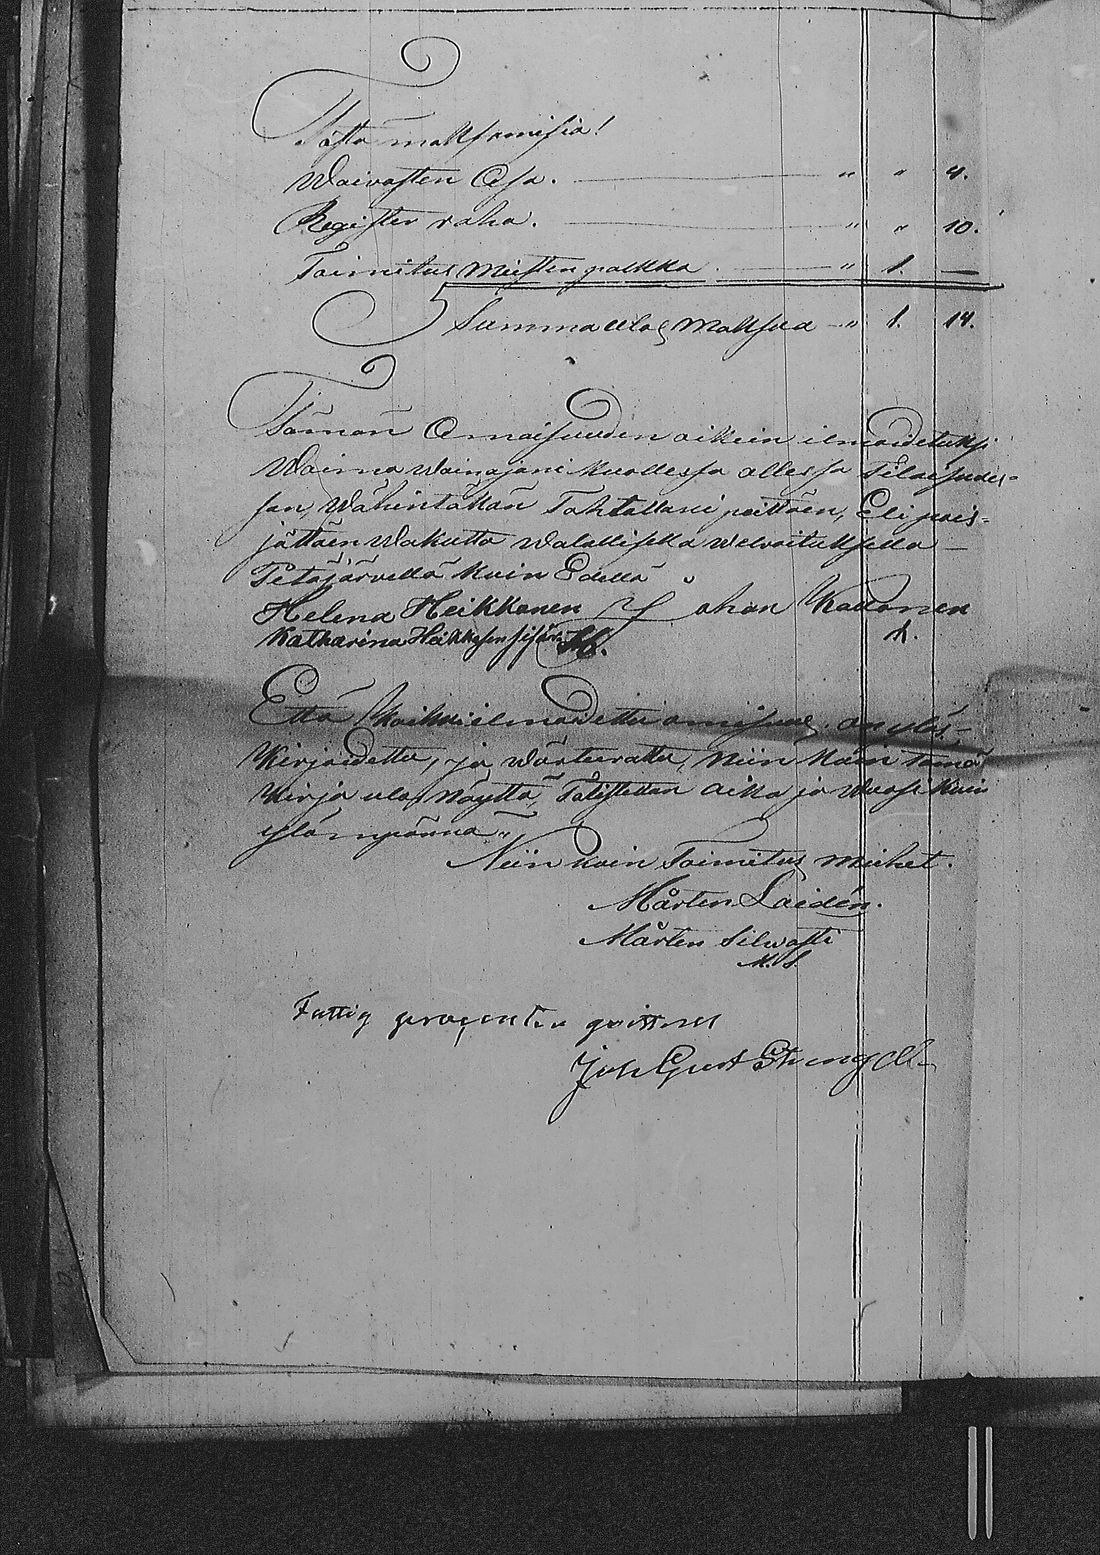 Tästä maksamisia!
Waivasten Osa. — " " 4.
Register raha. — " " 10.
Toimitus Miesten palkka. — " 1. —
Summa ulos Maksua — " 1. 14.
Tämän Omaisuuden oikein ilmoidetuksi
Waimo Wainajani kuollessa ollessa Tilaisudes-
san, Wähintäkän Tahtallani peittäen, Eli pois-
jättäen Wakutta Walallisella Welvoituksella —
Petäjärvellä kuin Edellä
Helena Heikkonen Johan Kattonen
Katharina Heikkosen sisär
Että Kaikki ilmoidettu omisuus on ylös-
Kirjoidettu, ja Wärteerattu, Niin kuin tämä
Kirja ulos Näyttä, Tatistetan Aika ja Wuosi kuin
ylämpänna "
Niin kuin Toimitus miehet.
Mårten Laidén.
Mårten Silwasti
M. S.
Fattig procenten qvitteras
Joh Gust Strengell